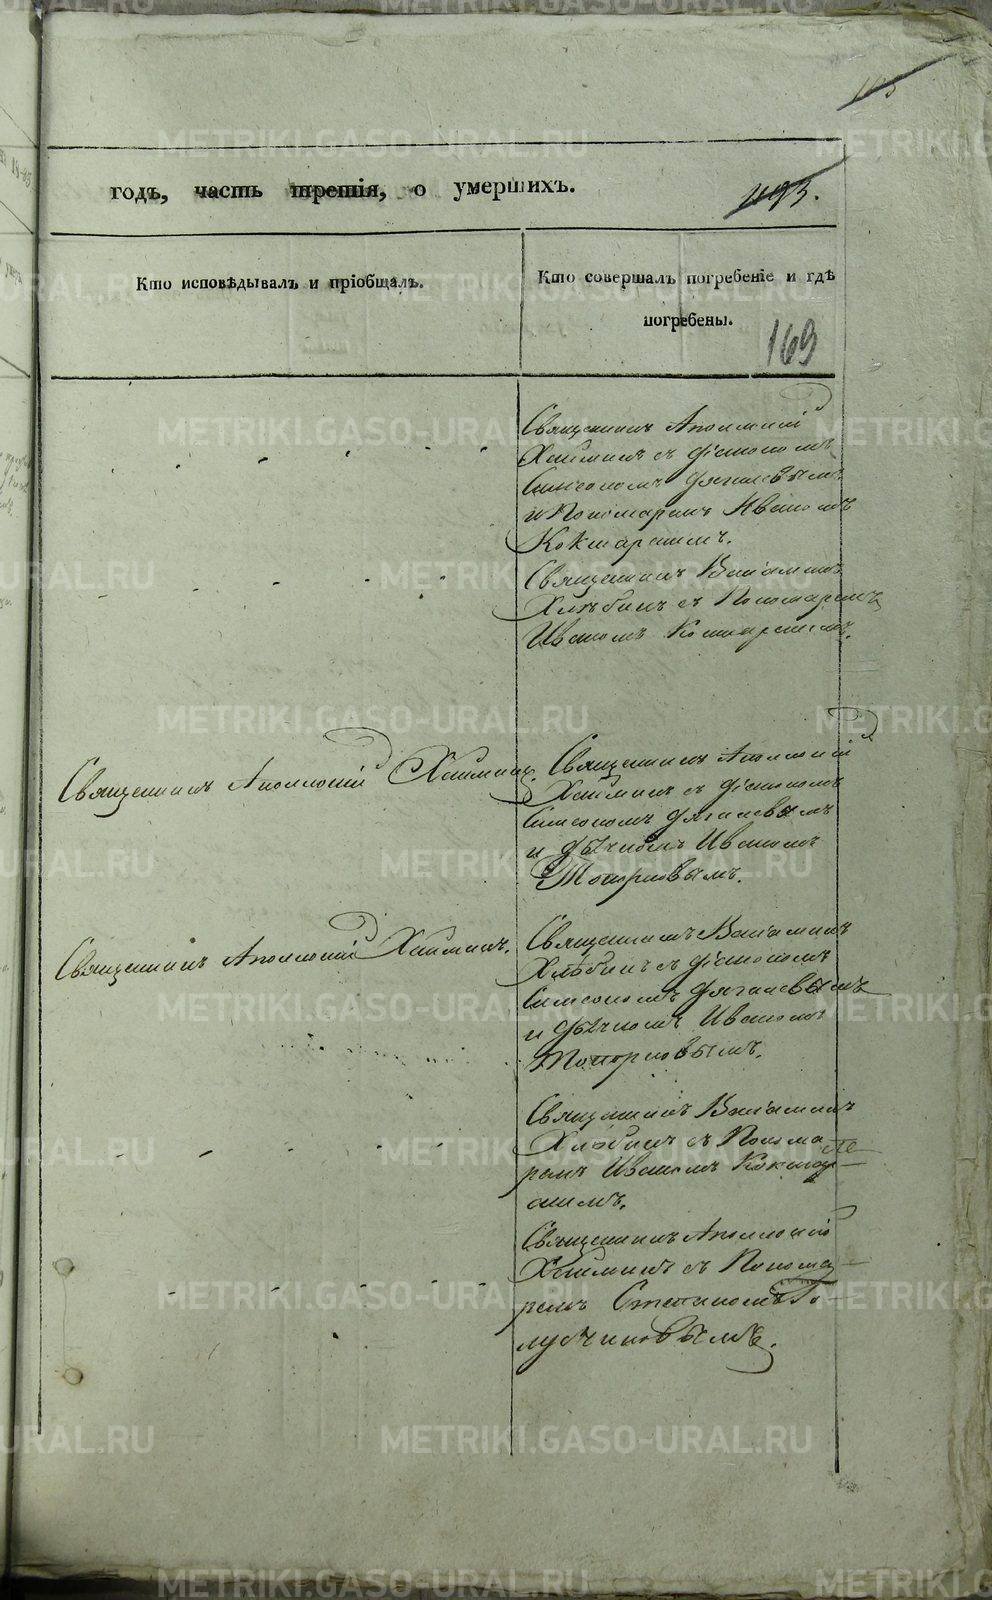 годъ, часть третія, о умершихъ.
1193.
Кто исповѣдывалъ и пріобщалъ.
Кто совершалъ погребеніе и гдѣ
погребены.
169
Священникъ Аполлоній
съ Діакономъ
Симеономъ Дягилевымъ
и Пономаремъ Иваномъ
Священникъ Веніаминъ
Хлѣбинъ съ Пономаремъ
Иваномъ
Священникъ Аполлоній
Священникъ Аполлоній
съ Діакономъ
Симеономъ Дягилевымъ
и Дьячкомъ Иваномъ
Топорковымъ.
Священникъ Аполлоній
Священникъ Веніаминъ
Хлѣбинъ съ Діакономъ
Симеономъ Дягилевымъ
и Дьячкомъ Иваномъ
Топорковымъ.
Священникъ Веніаминъ
Хлѣбинъ съ Понома
ремъ Иваномъ
Священникъ Аполлоній
съ Понома
ремъ Степаномъ Го
лубчиковымъ.
METRIKI.GASO-URAL.RU